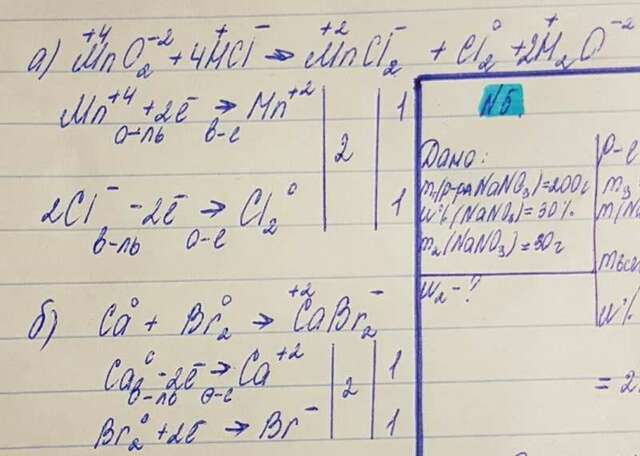 а) Mn⁺⁴O₂⁻² + 4H⁺Cl⁻ → Mn⁺²Cl₂⁻ + Cl₂⁰ + 2H₂⁺O⁻²
Mn⁺⁴ + 2ē → Mn⁺² | | 1
о-ль в-е
2
2Cl⁻ - 2ē → Cl₂⁰ | | 1
в-ль о-е
б) Ca⁰ + Br₂⁰ → Ca⁺²Br₂⁻
Ca⁰ - 2ē → Ca⁺² | | 1
в-ль о-е
2
Br₂⁰ + 2ē → Br⁻ | | 1
№5.
Дано:
m₁(р-ра NaNO₃)=200г
w%(NaNO₃)=30%
m₂(NaNO₃)=30г
w₂-?
р-е
m₃
m(Na
mвсе
w%
= 2